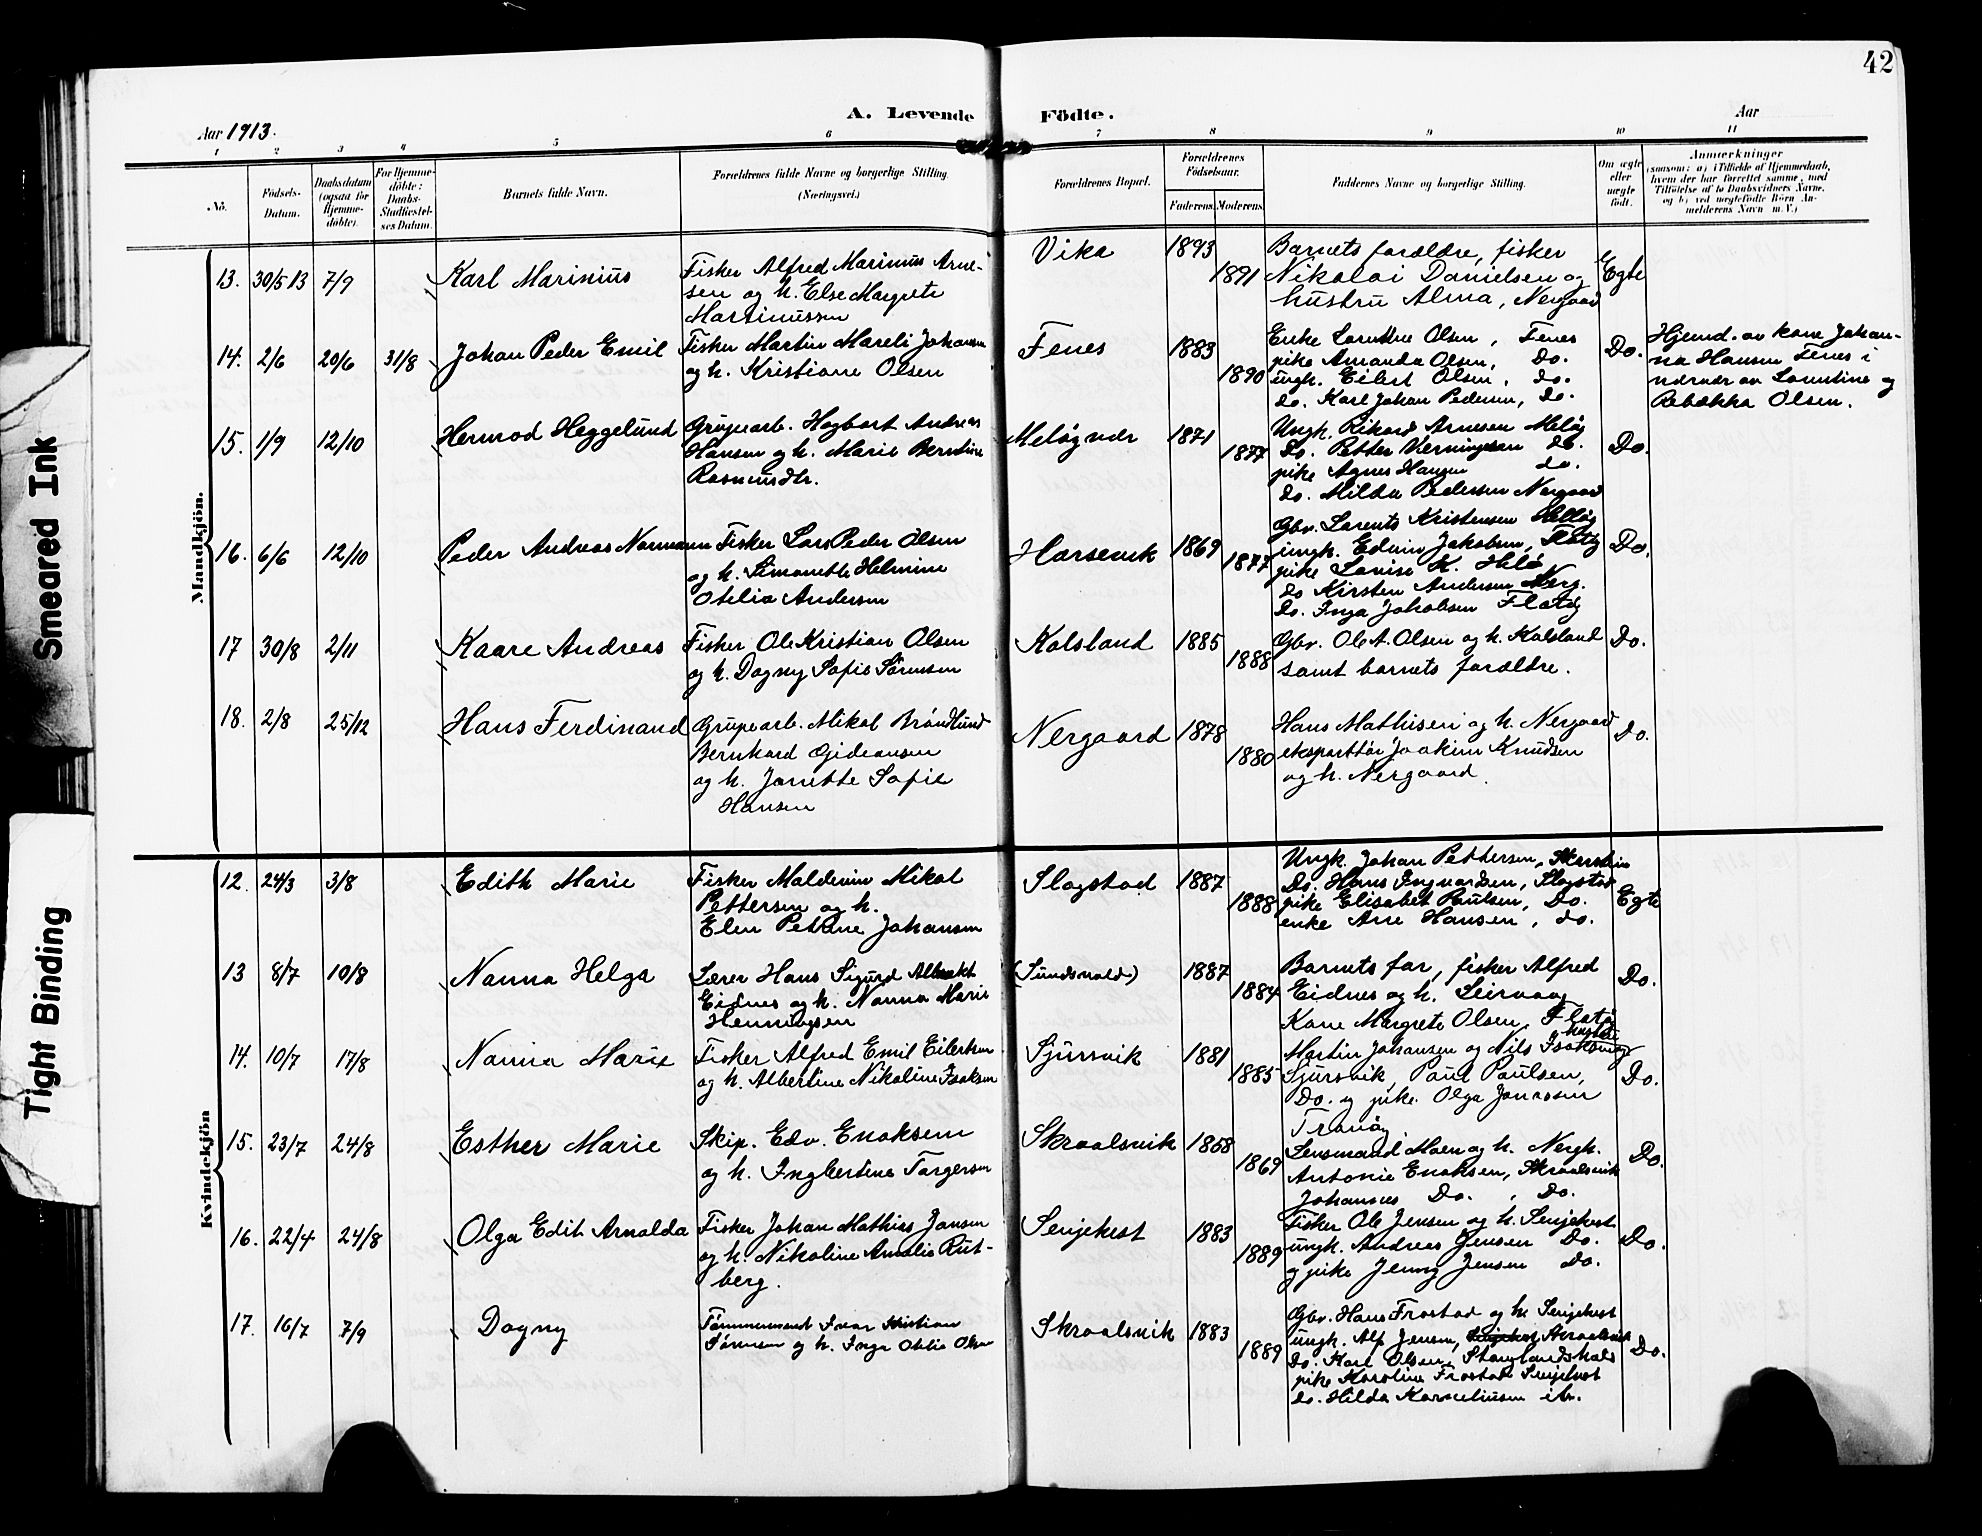 42
A. Levende Födte.
Aar 1913.
Aar
1 2 3 4 5 6 7 8 9 10 11
No.
Födsels-Datum.
Daabsdatum (ogsaa for Hjemme-döbte).
For Hjemme-döbte: Daabs-Stadfæstel-ses Datum.
Barnets fulde Navn.
Forældrenes fulde Navne og borgerlige Stilling. (Næringsvei.)
Forældrenes Bopæl.
Forældrenes Födselsaar.
Faderens. Moderens.
Faddernes Navne og borgerlige Stilling.
Om ægte eller uægte födt.
Anmærkninger
(saasom: a) i Tilfælde af Hjemmedaab, hvem der har forrettet samme, med Tilföielse af to Daabsvidners Navne, og b) ved uægtefödte Börn Anmelderens Navn m. V.)
Mandkjön.
13. 30/5 13 7/9 Karl Marinius
Fisker Alfred Marinius Arne-
sen og h. Else Margrete
Martinussen
Vika 1893 1891
Barnets forældre, fisker
Nikolai Danielsen og
hustru Alma, Nergaard
Egte
14. 2/6 20/6 31/8 Johan Peder Emil
Fisker Martin Mareli Johansen
og h. Kristiane Olsen
Fenes 1883 1890
Enke Lorentine Olsen, Fenes
pike Amanda Olsen, Do.
ungk. Eilert Olsen, do.
do. Karl Johan Pedersen, Do.
Do.
Hjemd. av kone Johan-
na Hansen Fenes i
nærvær av Lorentine og
Rebekka Olsen.
15. 1/9 12/10 Hermod Heggelund
Grupearb. Hagbart Andreas
Hansen og h. Marie Berntine
Rasmusdtr.
Meløyvær 1871 1877
Ungk. Rikard Arnesen Meløy
Do. Petter Verningsen do.
pike Agnes Hansen do.
do. Milda Pedersen Nergaard
Do.
16. 6/6 12/10 Peder Andreas Normann
Fisker Lars Peder Olsen
og h. Simonette Helmine
Otelia Andersen
Harsevik 1869 1877
Gbr. Lorents Kristensen
ungk. Edvin Jakobsen, Flatø
pike Lovise K.
Do Kirsten Andersen Nerg.
Do. Inga Jakobsen Flatøy
Do.
17 30/8 2/11 Kaare Andreas
Fisker Ole Kristian Olsen
og h. Dagny Sofie Sørensen
Kalsland 1885 1888
Gbr. Ole A. Olsen og h. Kalsland
samt barnets forældre.
Do.
18. 2/8 25/12 Hans Ferdinand
Grupearb. Mikal Brøndlund
Bernhard Gideonsen
og h. Janette Sofie
Hansen
Nergaard 1878 1880
Hans Mathisen og h. Nergaard
ekspørtør Joakim Knudsen
og h. Nergaard.
Do.
Kvindekjön
12. 24/3 3/8 Edith Marie
Fisker Maldevin Mikal
Pettersen og h.
Elen Petrine Johansen
Slagstad 1887 1888
Ungk. Johan Pettersen,
Do. Hans Ingvardsen, Slagstad
pike Elisabet Paulsen, Do.
enke Ane Hansen, do.
Egte
13 8/7 10/8 Nanna Helga
Lærer Hans Sigurd Albrekt
Eidnes og h. Nanna Marie
Henningsen
(Sundsvold) 1887 1884
Barnets far, fisker Alfred
Eidnes og h. Leirvaag
Kone Margrete Olsen, Flatø
Do.
14. 10/7 17/8 Nanna Marie
Fisker Alfred Emil Eilertsen
og h. Albertine Nikoline Isaksen
Sjursvik 1881 1885
Martin Johansen og Nils Isaksen og
Sjursvik, Paul Paulsen,
Do. og pike. Olga Jonassen
Tranøy.
Do.
15. 23/7 24/8 Esther Marie
Skip. Edv. Enoksen
og h. Ingbertine Torgersen
Skraalsvik 1868 1869
Lensmand Moen og h. Nergh.
Antonie Enoksen, Skraalsvik
Johannes Do. , Do.
Do.
16. 22/4 24/8 Olga Edit Arnalda
Fisker Johan Mathias Jansen
og h. Nikoline Amalie Rut-
berg.
Senjehest 1883 1889
Fisker Ole Jensen og h. Senjehest
ungk. Andreas Jensen Do.
og pike Jenny Jensen Do.
Do.
17. 16/7 7/9 Dagny
Tømmermand Ivar Kristian
Sørensen og h. Inga Otelia Olsen
Skraalsvik 1883 1889
Gbr. Hans Frostad og h. Senjehest
ungk. Alf Jensen, Skraalsvik
Do. Karl Olsen, Stonglandshals
pike Karoline Frostad Senjehest
Do. Hilda Korneliussen ib.
Do.
Smeared Ink
Tight Binding